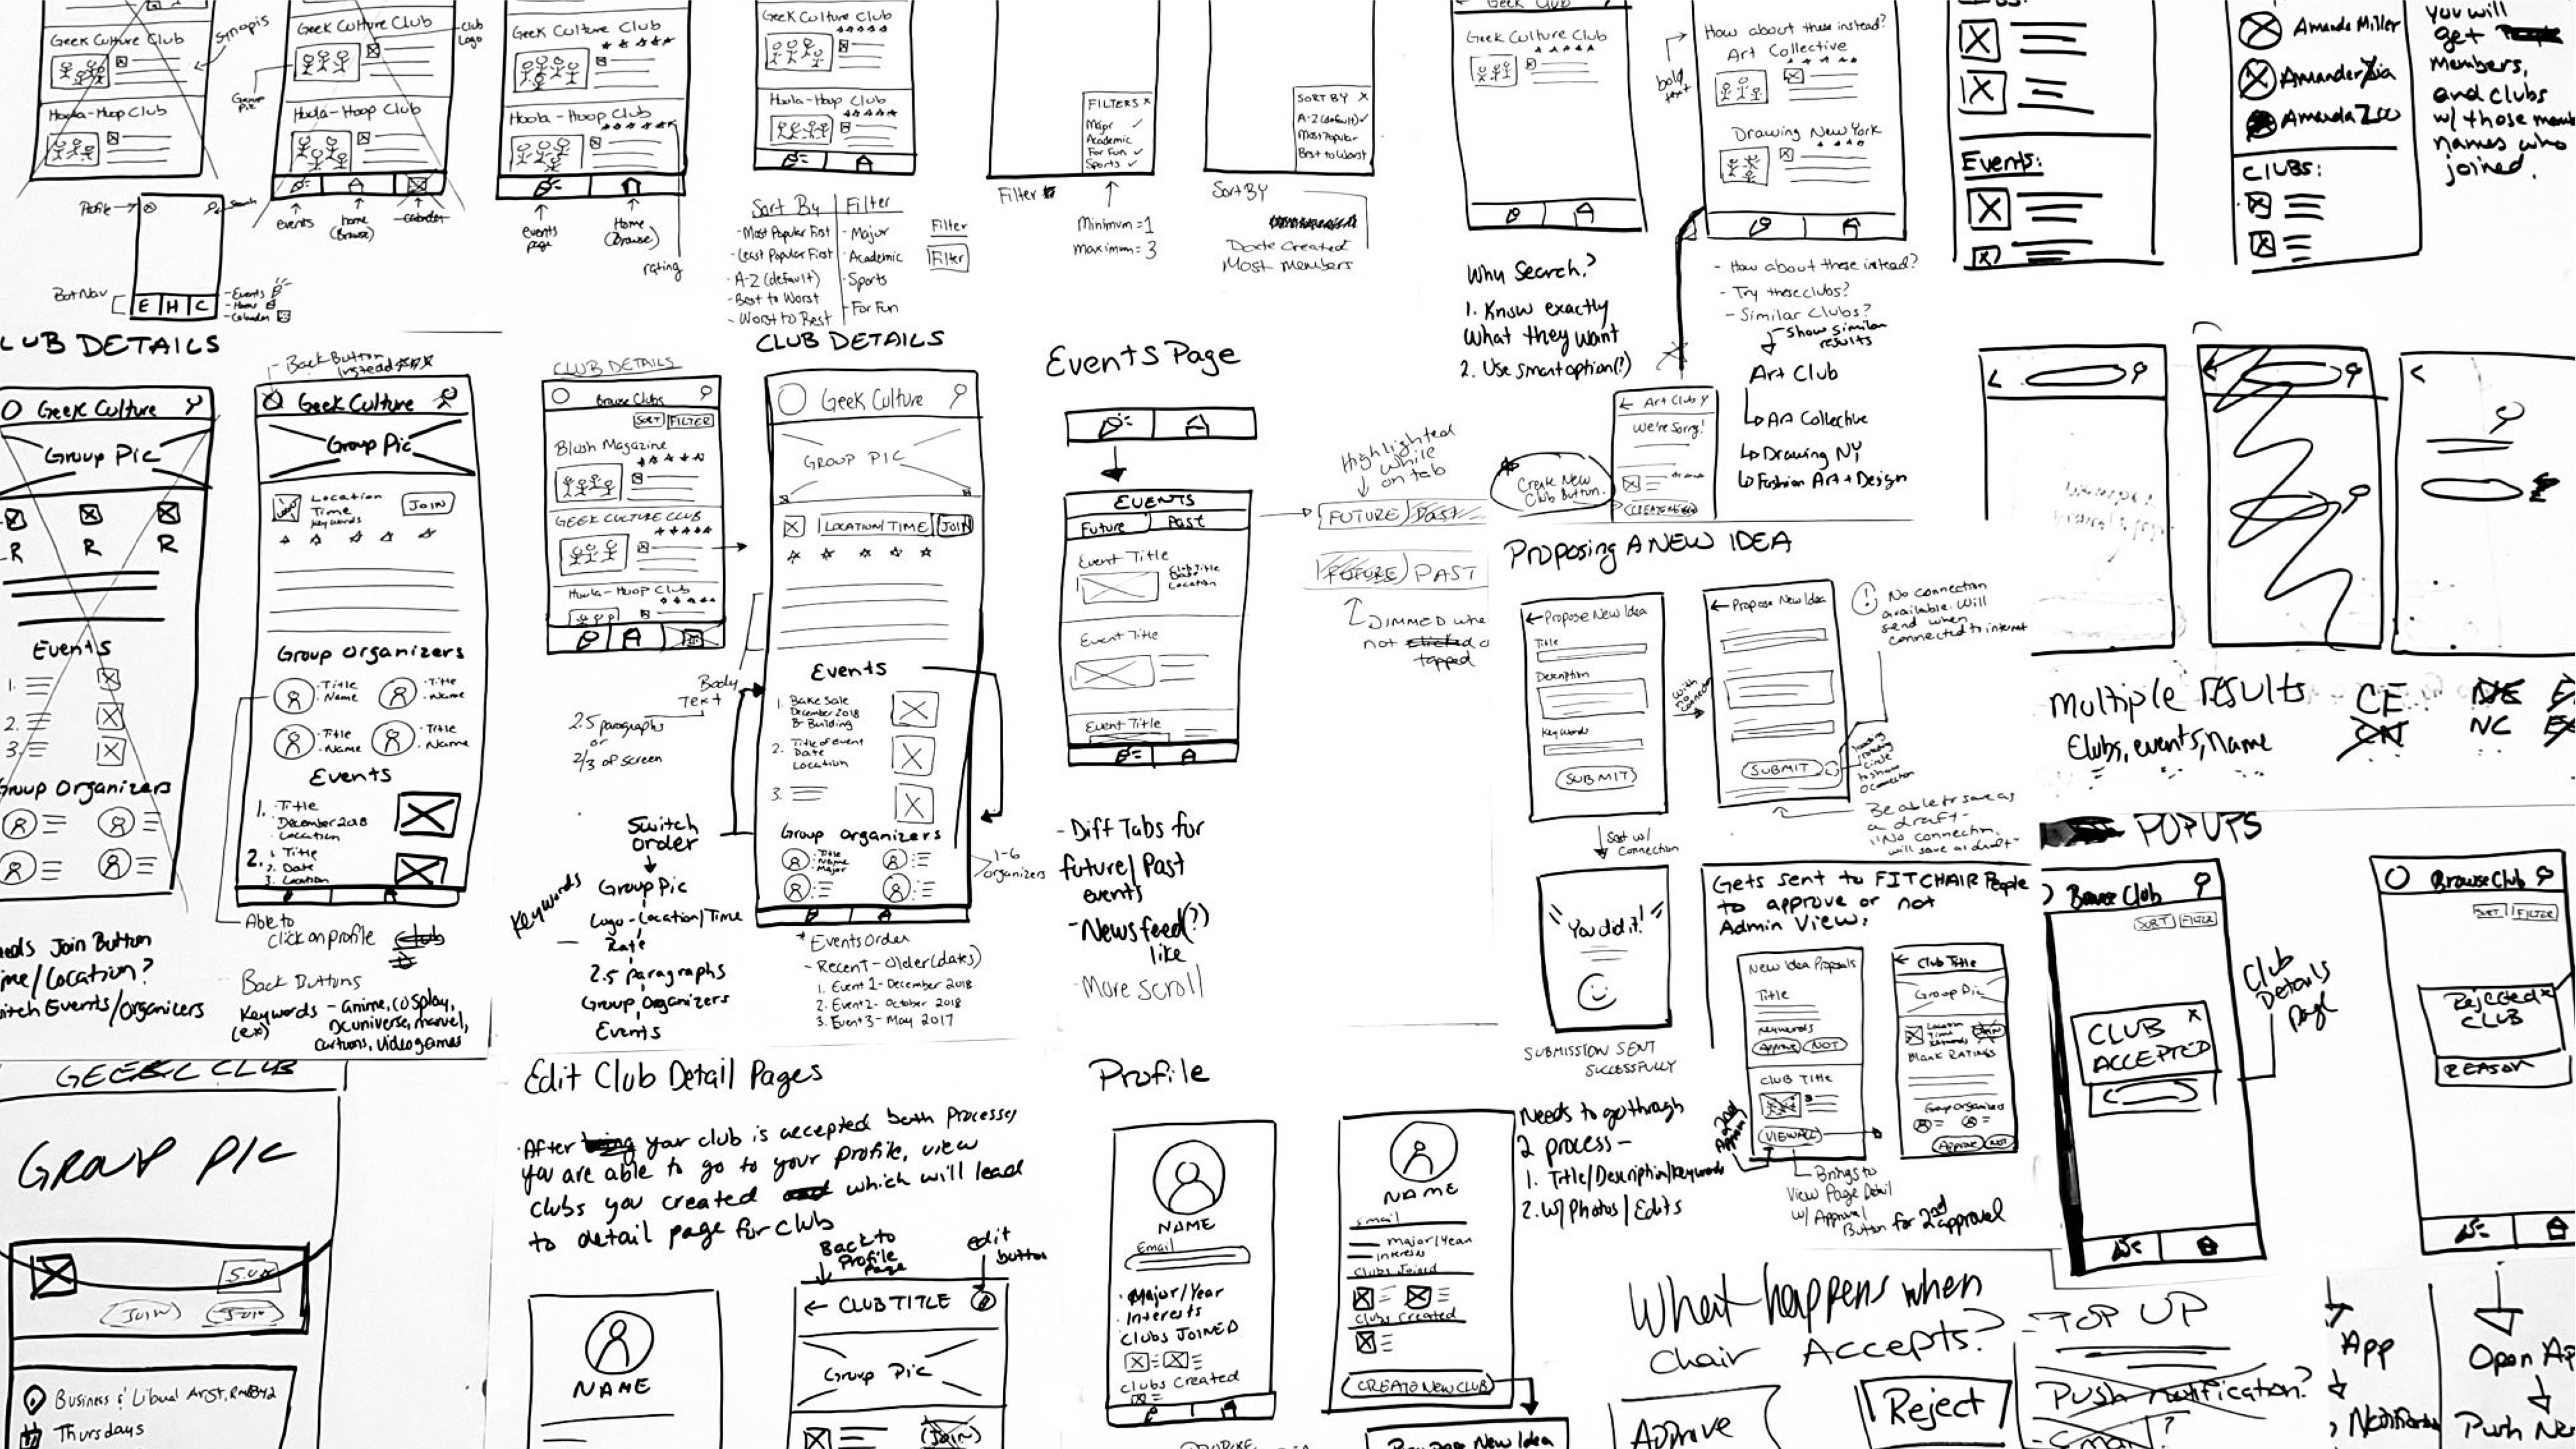 Geek Culture Club
Hoola-Hoop Club
Synopsis
Geek Culture Club
Club
Logo
Group
Pic
Hoola-Hoop Club
events
home
(Browse)
Calender
Profile
Search
Bot Nav
E H C
- Events
- Home
- Calender
Geek Culture Club
Hoola-Hoop Club
events
page
Home
(Browse)
rating
Geek Culture Club
Hoola-Hoop Club
Sort By
- Most Popular First
- Least Popular First
- A-Z (default)
- Best to Worst
- Worst to Best
Filter
- Major
- Academic
- Sports
- For Fun
Filter
Filter
FILTERS X
Major ✓
Academic
For Fun ✓
Sports ✓
Filter
Minimum = 1
maximum = 3
SORT BY X
A-Z (default) ✓
Most Popular
Best to Worst
Sort BY
Date Created
Most members
Geek Club
Geek Culture Club
Why Search?
1. Know exactly
what they want
2. Use smart option(?)
bold
text
How about these instead?
Art Collective
Drawing New York
- How about these instead?
- Try these clubs?
- Similar Clubs?
Show similar
results
Art Club
Art Collective
Drawing NY
Fashion Art + Design
← Art Club
We're Sorry!
Create New
Club Button.
Events:
Amanda Miller
Amander Zia
Amanda Zoo
CLUBS:
You will
get
members,
and clubs
w/ those
names who
joined.
LUB DETAILS
Geek Culture
Group Pic
R R R
Events
1.
2.
3.
Group Organizers
Join Button
me/Location?
itch Events/Organizers
Back Button
instead
Geek Culture
Group Pic
Logo
Location
Time
Keywords
JOIN
Group Organizers
Title
Name
Title
Name
Title
Name
Title
Name
Events
1. Title
December 2018
Location
2. Title
Date
Location
Able to
click on profile
Back Buttons
Keywords - anime, cosplay,
(ex) DC universe, marvel,
cartoons, video games
CLUB DETAILS
Browse Clubs
SORT FILTER
Blush Magazine
GEEK CULTURE CLUB
Hoola-Hoop Club
CLUB DETAILS
Geek Culture
GROUP PIC
LOCATION/TIME JOIN
Events
1. Bake Sale
December 2018
B Building
2. Title of event
Date
Location
3.
Group Organizers
Title
Name
Major
1-6
organizers
Body
Text
2.5 paragraphs
or
2/3 of screen
Switch
order
Keywords
Group Pic
Logo - Location/Time
Rate
2.5 paragraphs
Group Organizers
Events
* Events Order
- Recent - Older (dates)
1. Event 1 - December 2018
2. Event 2 - October 2018
3. Event 3 - May 2017
Events Page
EVENTS
Future Past
Event Title
Club Title
Date
Location
Event Title
Event Title
Highlighted
while
on tab
FUTURE PAST
FUTURE PAST
DIMMED
not clicked
tapped
- Diff Tabs for
future/Past
events
- Newsfeed(?)
like
- More scroll
Proposing A NEW IDEA
← Propose New Idea
Title
Description
Keywords
SUBMIT
← Propose New Idea
SUBMIT
No connection
available. Will
send when
connected to internet
Be able to save as
a draft -
"No connection,
will save as draft"
Sent w/
Connection
"You did it!"
SUBMISSION SENT
SUCCESSFULLY
Gets sent to FIT CHAIR People
to approve or not
Admin View:
New Idea Proposals
Title
Keywords
Approve NOT
CLUB TITLE
VIEW ALL
← Club Title
Group Pic
Location
Time
Keywords
JOIN
BLANK RATINGS
Group Organizers
Approve NOT
Brings to
View Page Detail
w/ Approval
Button for 2nd approval
Needs to go through
2 process -
1. Title/Description/Keywords
2. w/ Photos/Edits
Multiple results
Clubs, events, name
CE
CN
NE
NC
POPUPS
Browse Club
SORT FILTER
CLUB X
ACCEPTED
Club
Details
Page
Browse Club
SORT FILTER
Rejected X
CLUB
REASON
GEEK CLUB
GROUP PIC
JOIN
Business & Liberal Arts
Thursdays
Edit Club Detail Pages
· After your club is accepted both processes
you are able to go to your profile, view
clubs you created and which will lead
to detail page for club
NAME
Back to
Profile
Page
edit
button
← CLUB TITLE
Group Pic
JOIN
Profile
NAME
Email
· Major/Year
· Interests
Clubs JOINED
Clubs Created
NAME
Email
Major/Year
Interests
Clubs Joined
Clubs Created
CREATE NEW CLUB
Propose New Idea
What happens when
Chair Accepts?
Approve
Reject
- POP UP
Push notification?
- Email?
App
Open
Push